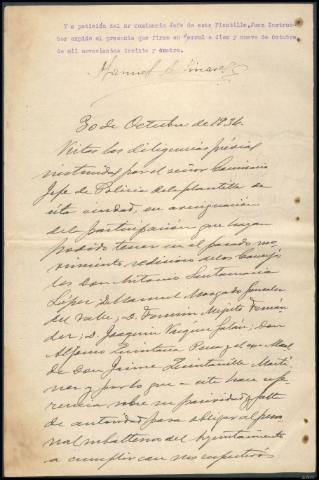 Y a petición del Sr Comisario Jefe de esta Plantilla, Juez Instruc-
tor expido el presente que firmo en Ferrol a diez y nueve de Octubre
de mil novecientos treinta y cuatro.
Manuel
30 de Octubre de 1934.
Vistas las diligencias previas
instruidas por el señor Comisario
Jefe de Policia de la plantilla de
ésta ciudad, en averiguación
de la participación que hayan
podido tener en el pasado mo-
vimiento sedicioso los Conceja-
les Don Antonio Santamaria
López; D. Manuel Morgado Gonzalez
del Valle; D. Mejuto Fernán
dez; D. Joaquin Vazquez; Don
Alfonso Quintana Pena y el
de Don Jaime Quintanilla Marti
nez y por lo que a este hace refe-
rencia sobre su pasividad y falta
de autoridad para obligar al perso
nal subalterno del Ayuntamiento
a cumplir con sus respectivos